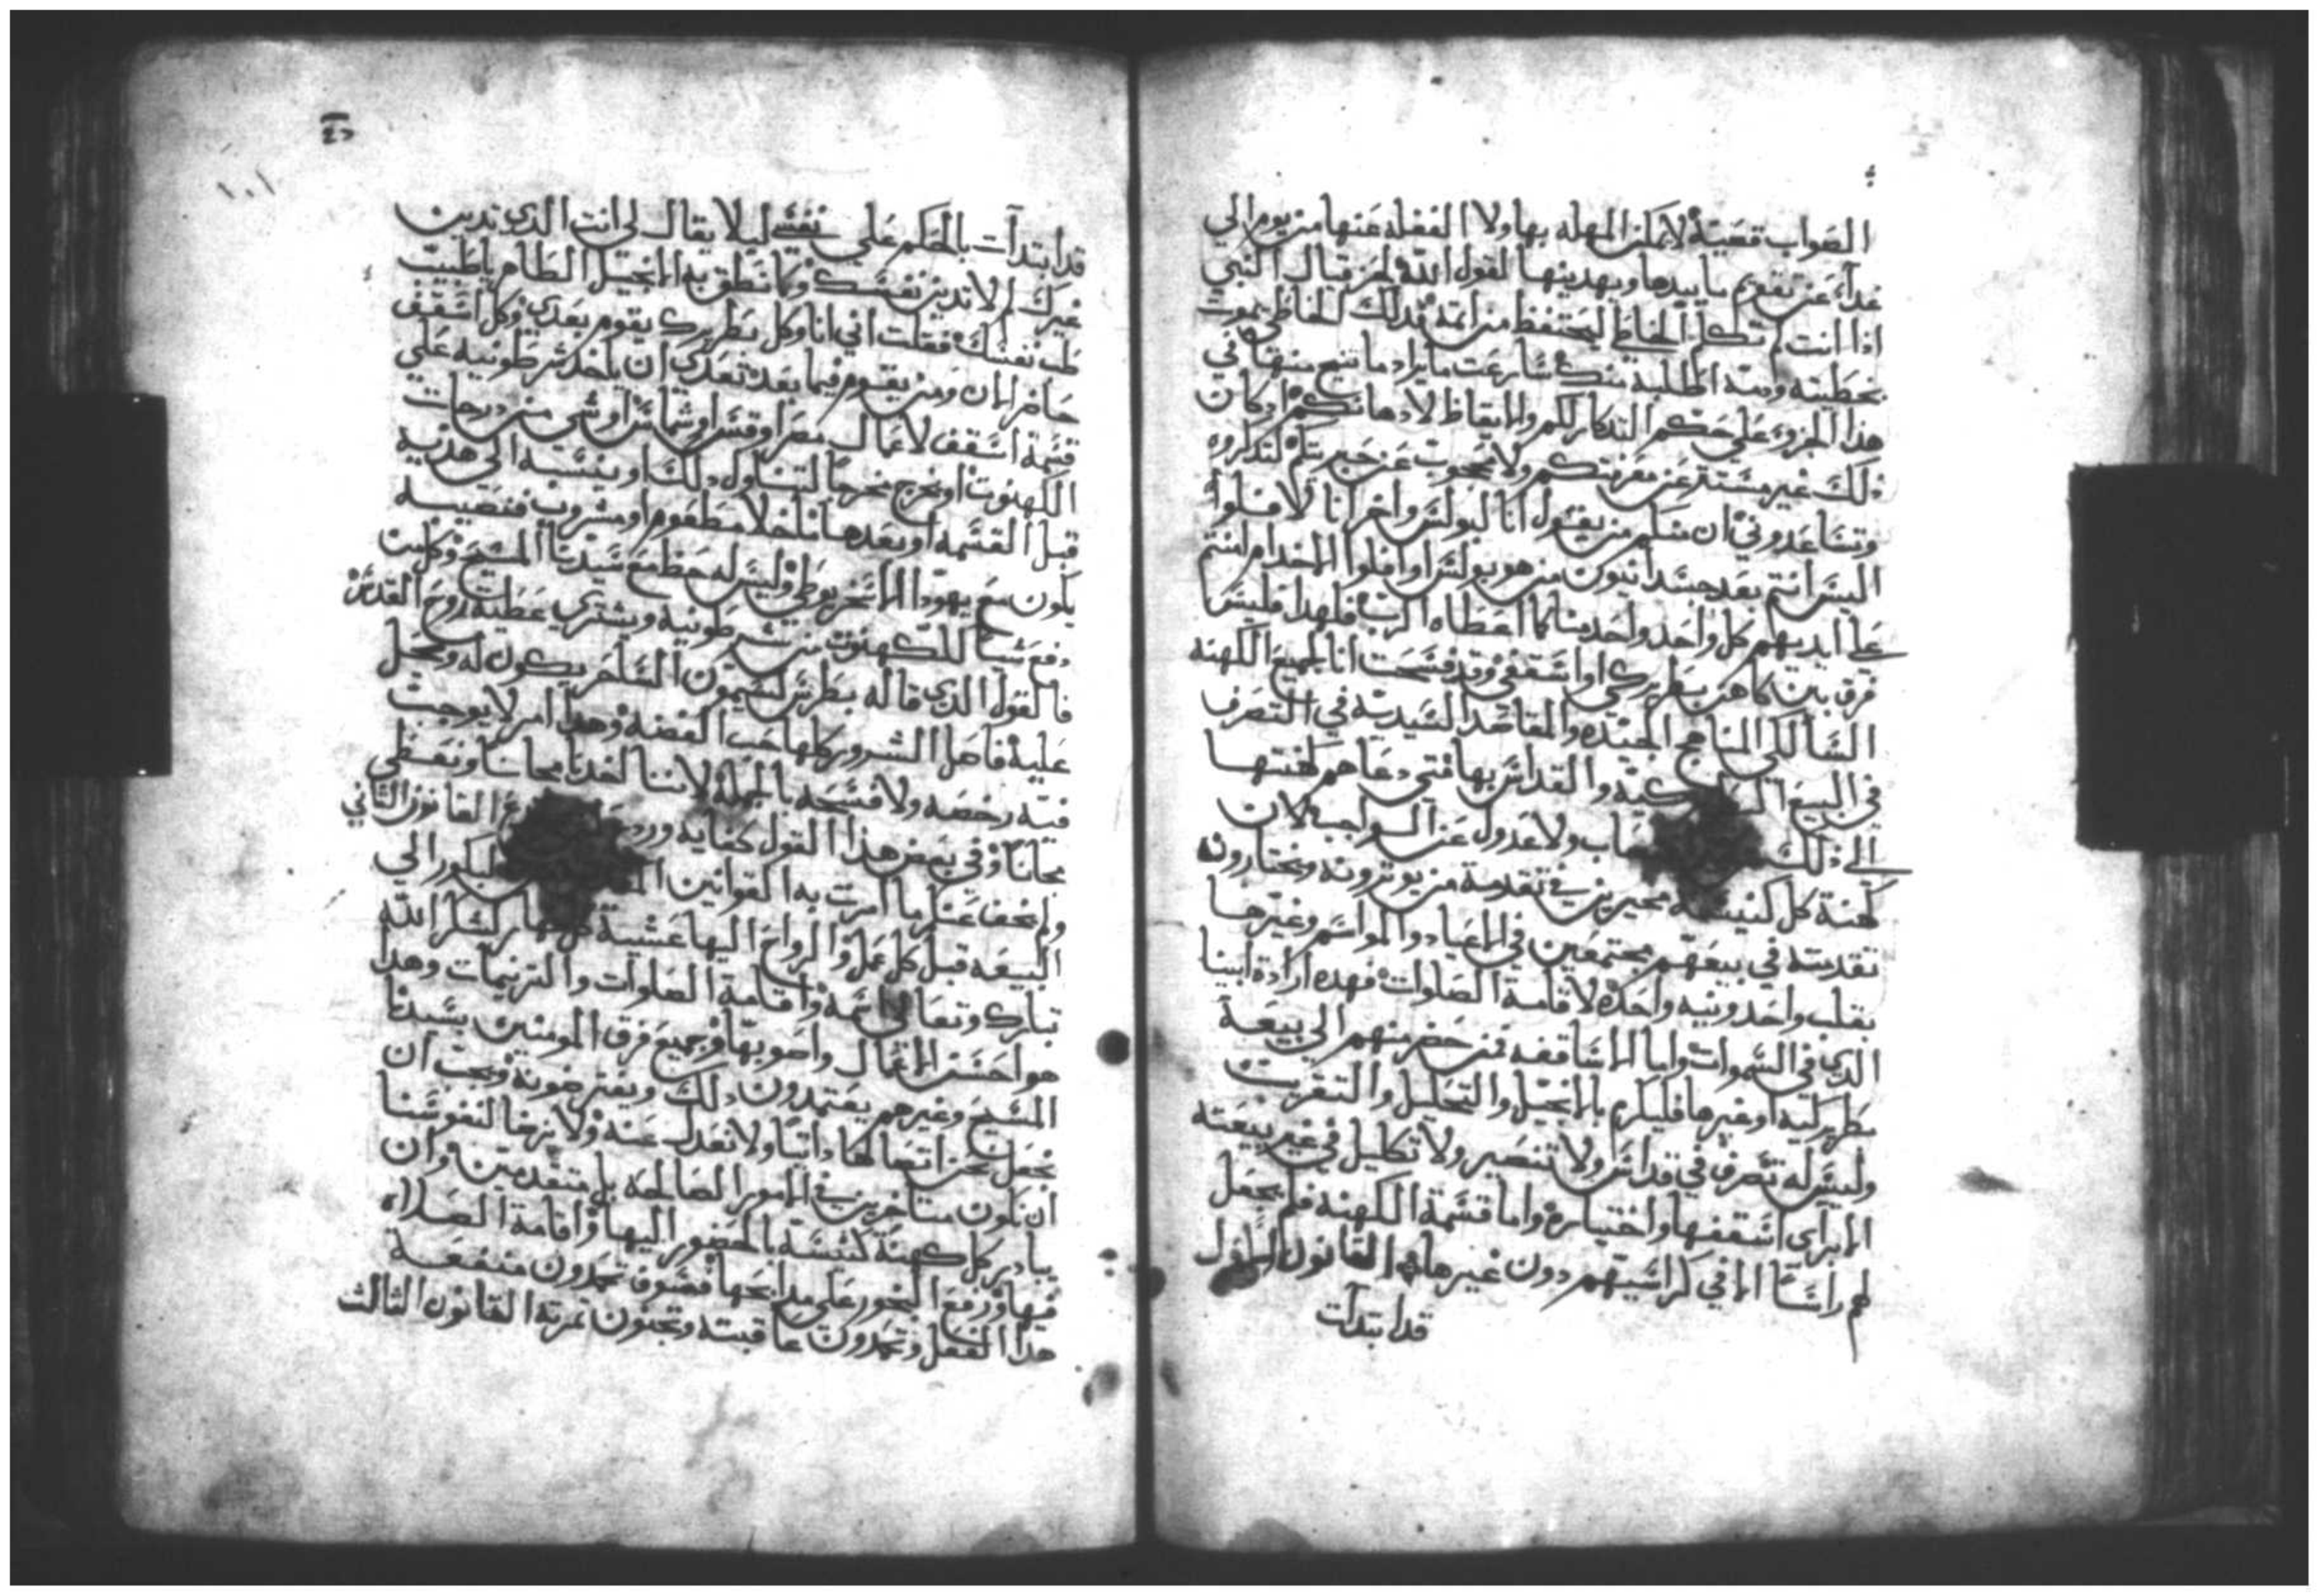 الصواب قضية لا يمكن المهله بها ولا الغفله عنها من يوم الي
غدآ، عن تقويم ما بيدها ويهدينها لقول الله لحزقيال النبي
اذا انت لم تكلم الخاطي ليحتفظ من اتمه فدلك الخاطي يموت
بخطيته ودمه اطلبه منك
هذا الجزو، على حكم التدكار لكم والايقاظ لادهانكم اد كان
ذلك غير مستتر عن معرفتكم ولا محجوب عن خبرتكم لتدكروه
وتساعدوني ان سلم من يقول انا لبولس واخر انا لافلوا
اليس انتم بعد جسدانيون من هو بولس او افلوا الا خدام امنتم
علي ايديهم كل واحد واحد منا كما اعطاه الرب فلهدا فليس
فرق بين كاهن بطريركي او اسقفي وقد فسحت انا لجميع الكهنه
السالكي المناهج الجيده والمقاصد السيديه في التصرف
في البيع والقداس بها متي دعاهم كهنتها
الي ذلك ولا عدول عن الواجب لان
كهنة كل كنيسه مخيرين في تقدمة من يوثرونه ويختارون
تقدمته في بيعهم مجتمعين في الاعياد والمواسم وغيرها
بقلب واحد ونيه واحده لاقامة الصلوات فهده ارادة ابينا
الدي في السموات واما الاساقفه فمن حضر منهم الي بيعة
بطريركيه او غيرها فليكرم بالانجيل والتحليل والتقريب
وليس له تصرف في قداس ولا تنصير ولا تكليل في غير بيعته
الا براى اسقفها واختياره واما قسمة الكهنه فلم يجعل
لهم راسآ الا في كراسيهم دون غيرها القانون الاول
قد ابتدآت
١٠١
قد ابتدآت بالحكم على نفسي ليلا يقال لي انت الدي تدين
غيرك لم لا تدين نفسك وكما نطق به الانجيل الطاهر ياطبيب
طب نفسك فقلت اني انا وكل بطريرك يقوم بعدي وكل اسقف
حاضر الان ومن يقوم فيما بعد تعدي ان ياخد شرطونيه علي
قسمة اسقف لاعمال مصر او قسا او شماسا او شي من درجات
الكهنوت او يخرج مخرجا لتناول دلك او ينسبه الي هديه
قبل القسمه او بعدها ماخلا مطعوم او مشروب فنصيبه
يكون مع يهودا الاسخريوطي وليس له حظ مع سيدنا المسيح وكل من
دفع شيا للكهنوت من شرطونيه ويشتري عطية روح القدس
فالقول الدي قاله بطرس لسيمون الساحر يكون له ويحل
عليه فاصل الشرور كلها حب الفضه وهدا امر لا يوجب
فيه رخصه ولا فسحه بالجمله لاننا اخدنا مجانا ونعطي
مجانا وفي بعض هذا القول كفايه القانون التاني
ولم يخف عنكم ما امرت به القوانين البكور الي
البيعه قبل كل عمل والرواح اليها عشية كل نهار لشكر الله
تبارك وتعالي واقامة الصلوات والترنيمات وهدا
هو احسن الاعمال واصوبها وجميع فرق المومنين بسيدنا
المسيح وغيرهم يعتمدون دلك ويفترضونه ويجب ان
نجعل نحن اتصالها دايما ولا نعدل عنه ولا نرضا لنفوسنا
ان نكون متاخرين في الامور الصالحه بل متقدمين وان
يبادر كل كهنة كنيسه بالحضور اليها واقامة الصلاه
فيها ورفع البخور علي مدابحها فسوف تجدون منفعة
هدا الفعل وتحمدون عاقبته وتجنون تمرته القانون التالت